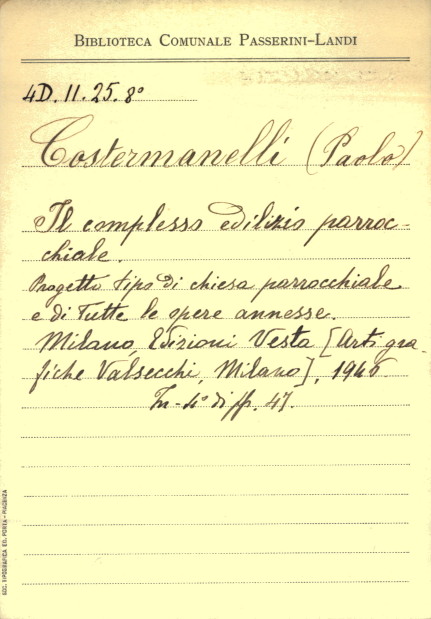 BIBLIOTECA COMUNALE PASSERINI-LANDI
4D. 11. 25. 8°
Costermanelli (Paolo)
Il complesso edilizio parroc-
chiale.
Progetto tipo di chiesa parrocchiale
e di Tutte le opere annesse.
Milano, Edizioni Vesta [Arti gra-
fiche Valsecchi, Milano], 1946.
In-4° di pp. 47.
SOC. TIPOGRAFICA ED. PORTA - PIACENZA